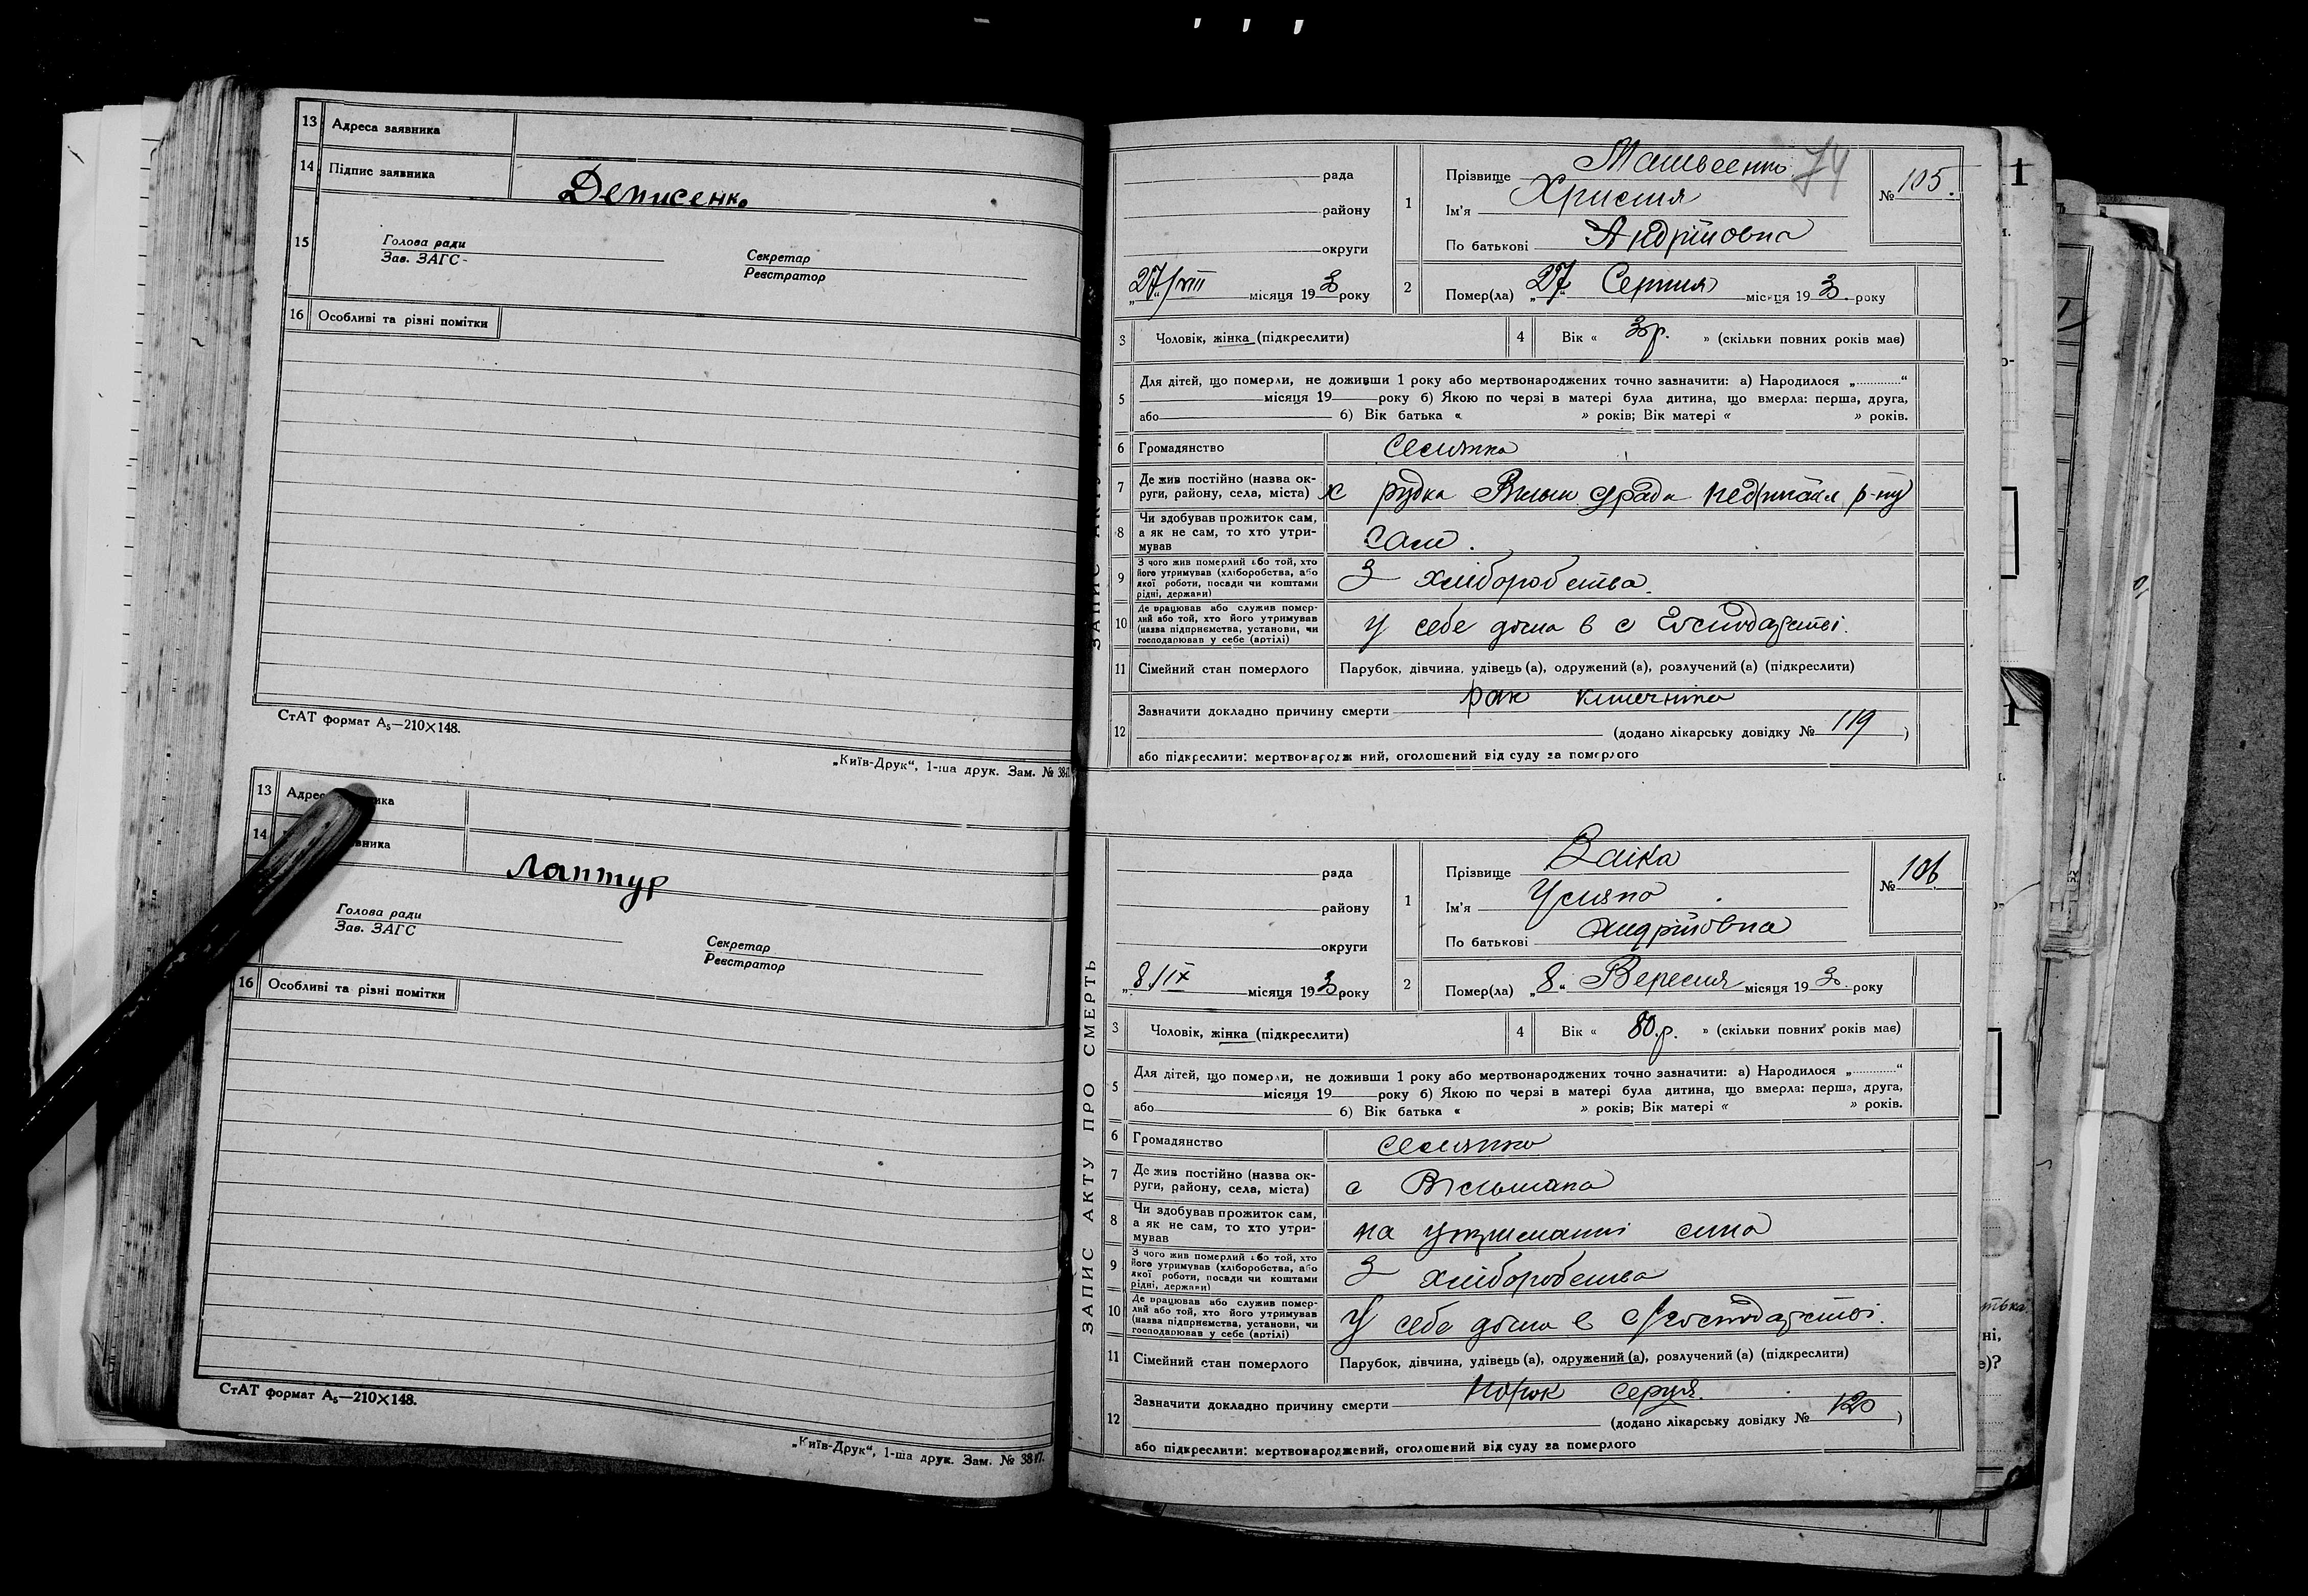 13 Адреса заявника
14 Підпис заявника Денисенко
15 Голова ради
Зав. ЗАГС
Секретар
Реєстратор
16 Особливі та різні помітки
СтАТ формат А₅—210×148.
„Київ-Друк“, 1-ша друк. Зам. № 3817.
13 Адреса заявника
14 заявника Лаптур
Голова ради
Зав. ЗАГС
Секретар
Реєстратор
16 Особливі та різні помітки
СтАТ формат А₅—210×148.
„Київ-Друк“, 1-ша друк. Зам. № 3817.
74
рада
району
округи
„27/VIII місяця 193 року
1 Прізвище Матвеенко
Ім'я Христя
По батькові Андрійовна
№ 105.
2 Помер(ла) „27“ Серпня місяця 193 року
3 Чоловік, жінка (підкреслити)
4 Вік « р. » (скільки повних років має)
5 Для дітей, що померли, не доживши 1 року або мертвонароджених точно зазначити: а) Народилося „............“
місяця 19 року б) Якою по черзі в матері була дитина, що вмерла: перша, друга,
або 6) Вік батька « » років; Вік матері « » років.
6 Громадянство Селянка
7 Де жив постійно (назва округи, району, села, міста) х рудка рада р-ну
8 Чи здобував прожиток сам, а як не сам, то хто утримував Сам.
9 З чого жив померлий або той, хто його утримував (хліборобства, або якої роботи, посади чи коштами рідні, держави) З хліборобства.
10 Де працював або служив померлий або той, хто його утримував (назва підприємства, установи, чи господарював у себе (артілі) У себе дома в с господарстві.
11 Сімейний стан померлого Парубок, дівчина, удівець (а), одружений (а), розлучений (а) (підкреслити)
12 Зазначити докладно причину смерти рак кишечника
(додано лікарську довідку № 119 )
або підкреслити: мертвонароджений, оголошений від суду за померлого
ЗАПИС АКТУ ПРО СМЕРТЬ
рада
району
округи
„8/IX місяця 193 року
1 Прізвище Заіка
Ім'я Усляна
По батькові Андрійовна
№ 106
2 Помер(ла) „8“ Вересня місяця 193 року
3 Чоловік, жінка (підкреслити)
4 Вік « 80.р. » (скільки повних років має)
5 Для дітей, що померли, не доживши 1 року або мертвонароджених точно зазначити: а) Народилося „............“
місяця 19 року б) Якою по черзі в матері була дитина, що вмерла: перша, друга,
або 6) Вік батька « » років; Вік матері « » років.
6 Громадянство селянка
7 Де жив постійно (назва округи, району, села, міста) с
8 Чи здобував прожиток сам, а як не сам, то хто утримував на утриманні сина
9 З чого жив померлий або той, хто його утримував (хліборобства, або якої роботи, посади чи коштами рідні, держави) З хліборобства
10 Де працював або служив померлий або той, хто його утримував (назва підприємства, установи, чи господарював у себе (артілі) У себе дома в с/господарстві.
11 Сімейний стан померлого Парубок, дівчина, удівець (а), одружений (а), розлучений (а) (підкреслити)
12 Зазначити докладно причину смерти порок серця.
(додано лікарську довідку № 120 )
або підкреслити: мертвонароджений, оголошений від суду за померлого